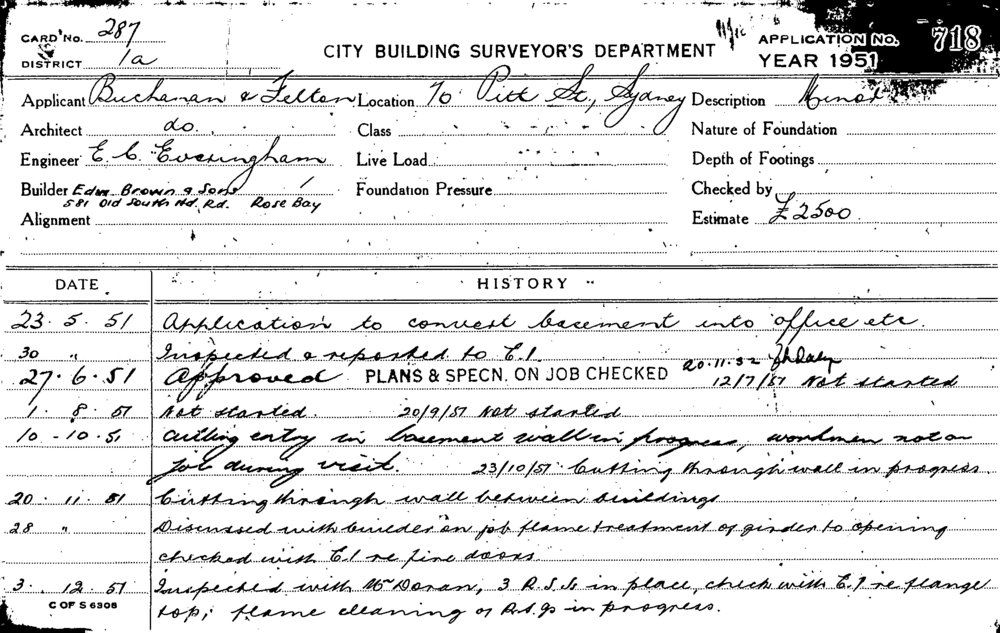 CARD No. 287
DISTRICT 1a
CITY BUILDING SURVEYOR'S DEPARTMENT
APPLICATION NO. 718
YEAR 1951
Applicant Buchanan & Felton Location 70 Pitt St., Sydney Description Minor
Architect do. Class Nature of Foundation
Engineer E. C. Everingham Live Load Depth of Footings
Builder Edw. Brown & Sons Foundation Pressure Checked by
581 Old South Hd. Rd. Rose Bay
Alignment Estimate £2500
DATE HISTORY
23.5.51 Application to convert basement into office etc.
30 " Inspected & reported to E.I.
27.6.51 Approved PLANS & SPECN. ON JOB CHECKED 20.11.52
12/7/51 Not started
1.8.51 Not started. 20/9/51 Not started
10-10-51 Cutting entry in basement wall in progress, workmen not on
job during visit. 23/10/51 Cutting through wall in progress
20.11.51 Cutting through wall between buildings
28 " Discussed with builder on job flame treatment of girder to opening
checked with E.I. re fire doors
3.12.51 Inspected with Mr Doran, 3 R.S.Js in place, check with E.I. re flange
top; flame cleaning of R.S.Js in progress.
C OF S 6308